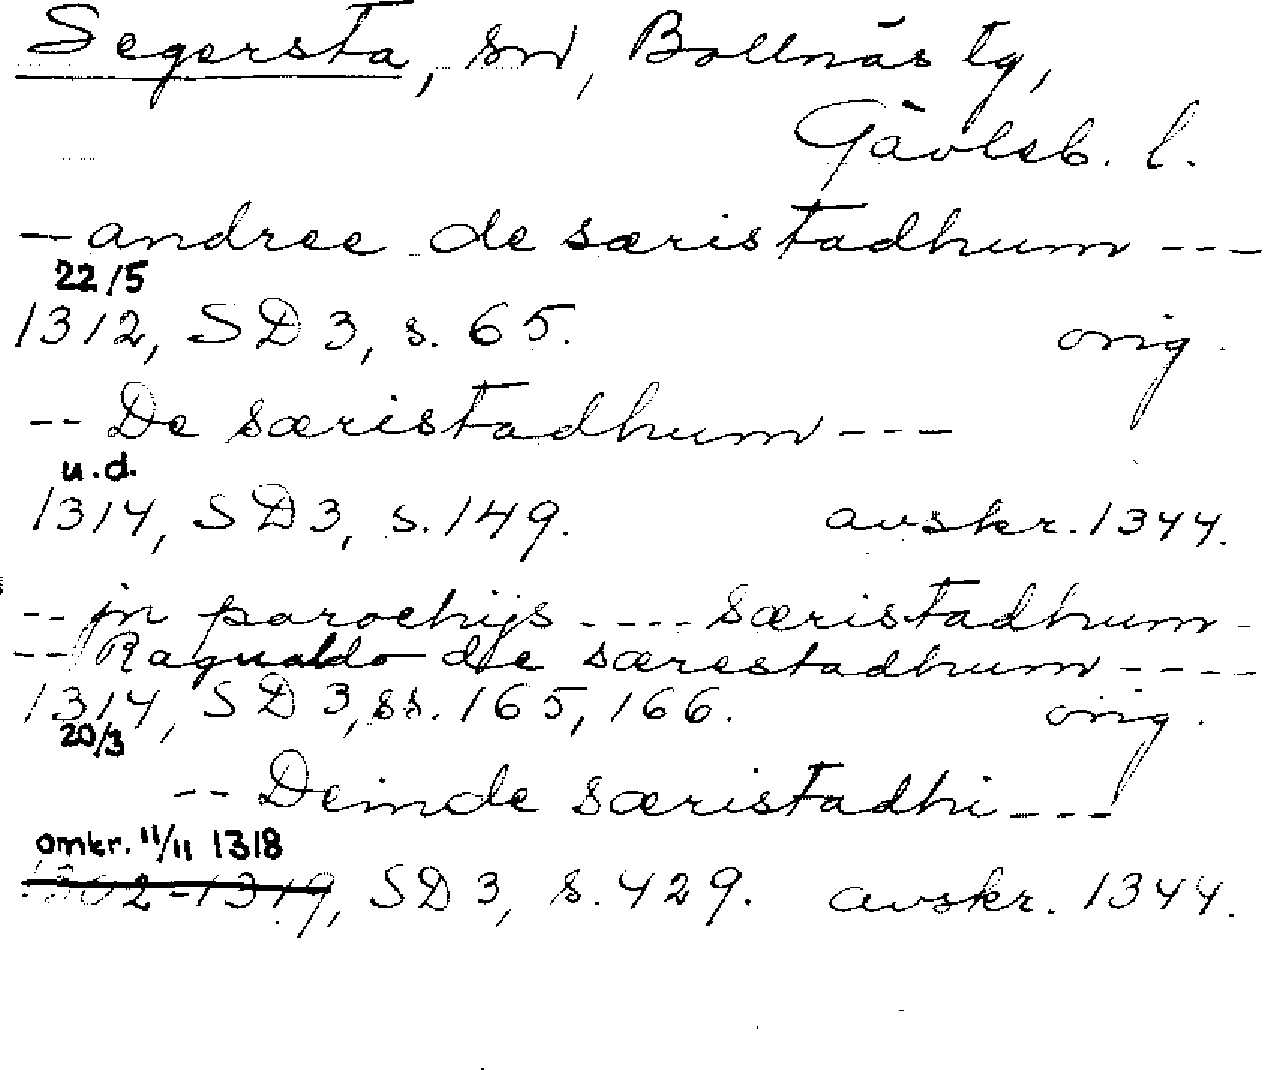 Segersta, sn, Bollnäs tg,
Gävleb. l.
-- andree de særistadhum ---
22/5
1312, SD 3, s. 65. orig.
-- De særistadhum ---
u.d.
1314, SD 3, s. 149. avskr. 1344.
-- jn parochijs ---- særistadhum -
-- Ragualdo de særestadhum ----
1314, SD 3, ss. 165, 166. orig.
20/3
-- Deinde særistadhi ---
omkr. 11/11 1318
1302-1319, SD 3, s. 429. avskr. 1344.